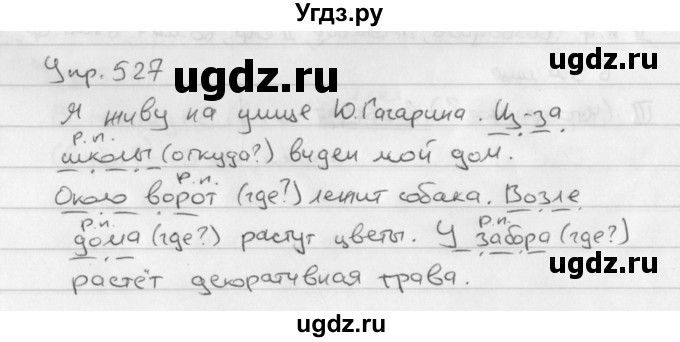 Угдз.ру
Упр. 527
ugdz.ru
ugdz.ru
Я живу на улице Ю.Гагарина. Из-за
р.п.
школы (откуда?) виден мой дом.
р.п.
Около ворот (где?) лежит собака. Возле
р.п. р.п.
дома (где?) растут цветы. У забора (где?)
растёт декоративная трава.
ugdz.ru
ugdz.ru
ugdz.ru